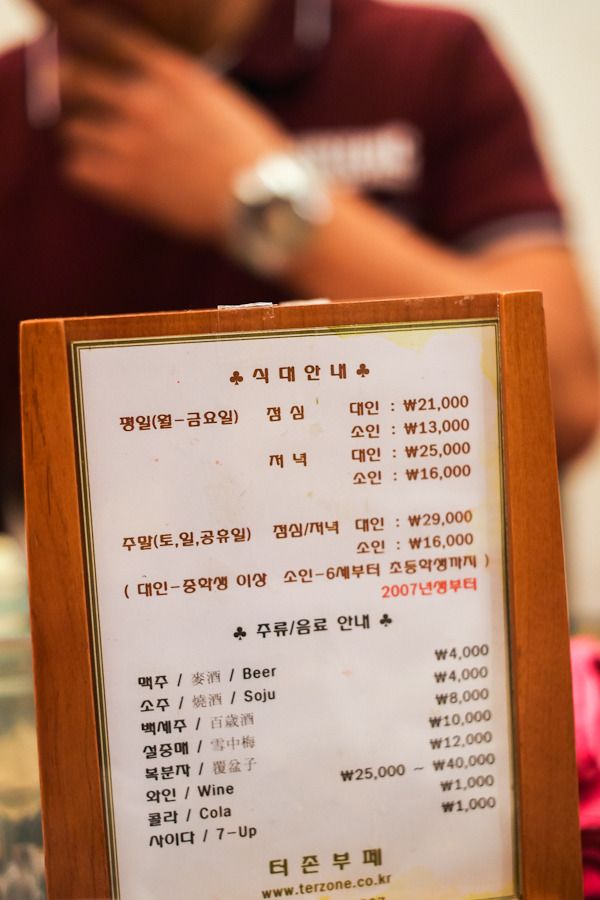 ♣ 식 대 안 내 ♣
평일(월-금요일) 점 심 대인 : ₩21,000
소인 : ₩13,000
저 녁 대인 : ₩25,000
소인 : ₩16,000
주말(토,일,공휴일) 점심/저녁 대인 : ₩29,000
소인 : ₩16,000
( 대인-중학생 이상 소인-6세부터 초등학생까지 )
2007년생부터
♣ 주류/음료 안내 ♣
맥주 / 麥酒 / Beer ₩4,000
소주 / 燒酒 / Soju ₩4,000
백세주 / 百歲酒 ₩8,000
설중매 / 雪中梅 ₩10,000
복분자 / 覆盆子 ₩12,000
와인 / Wine ₩25,000 ~ ₩40,000
콜라 / Cola ₩1,000
사이다 / 7-Up ₩1,000
터 존 부 페
www.terzone.co.kr